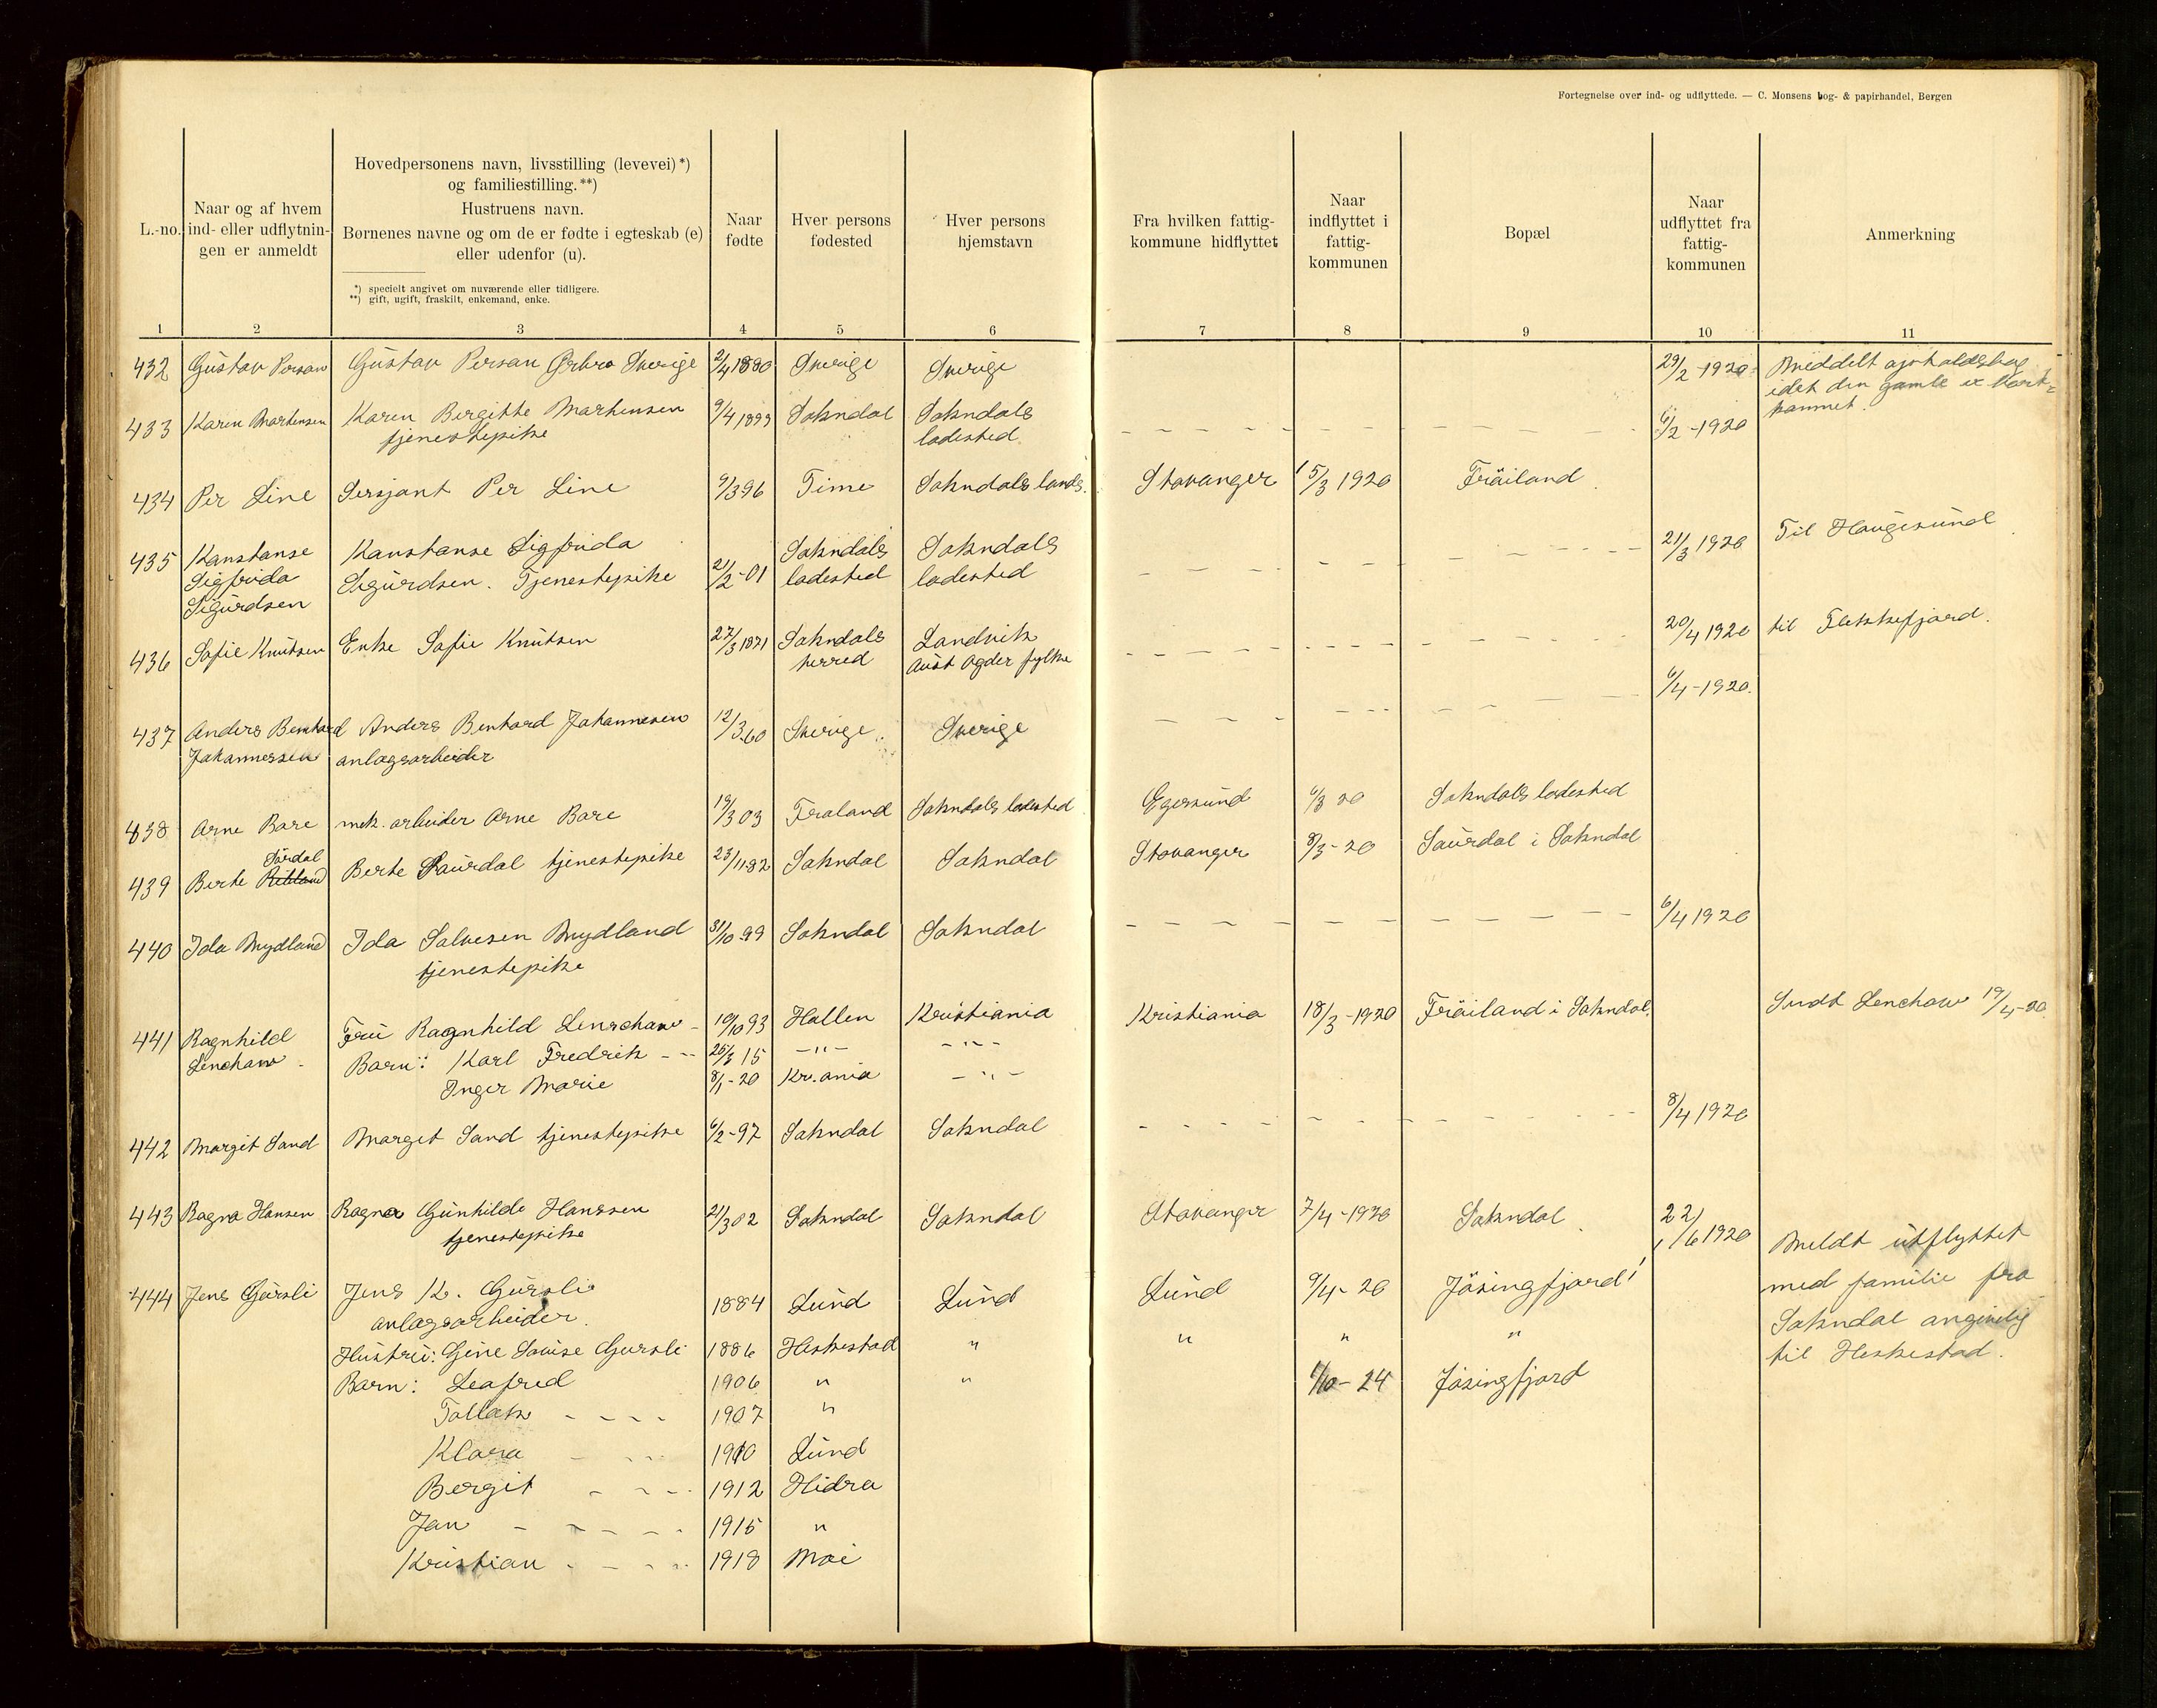 Fortegnelse over ind- og udflyttede. — C. Monsens bog- & papirhandel, Bergen
L.-no.
Naar og af hvem
ind- eller udflytnin-
gen er anmeldt
Hovedpersonens navn, livsstilling (levevei)*)
og familiestilling.**)
Hustruens navn.
Børnenes navne og om de er fødte i egteskab (e)
eller udenfor (u).
*) specielt angivet om nuværende eller tidligere.
**) gift, ugift, fraskilt, enkemand, enke.
Naar
fødte
Hver persons
fødested
Hver persons
hjemstavn
Fra hvilken fattig-
kommune hidflyttet
Naar
indflyttet i
fattig-
kommunen
Bopæl
Naar
udflyttet fra
fattig-
kommunen
Anmerkning
1 2 3 4 5 6 7 8 9 10 11
432 Gustav Persan Gustav Persan Ørbro Sverige 2/4 1880 Sverige Sverige 29/2-1920 Meddelt opholdsbog
idet den gamle er bort-
kommet.
433 Karen Martensen Karen Bergitte Martensen 9/4 1899 Sokndal Sokndals - - - - 6/2-1920
tjenestepike ladested
434 Per Line Sersjant Per Line 9/3 96 Time Sokndals lands. Stavanger 15/3 1920 Fröiland
435 Kanstanse Kanstanse Sigfrida Sokndals Sokndals - - - - 21/3 1920 Til Haugesund
Sigfrida Sigurdsen. Tjenestepike 21/2-01 ladested ladested
Sigurdsen
436 Sofie Knutsen Enke Sofie Knutsen 27/3 1871 Sokndals Landvik - - - - 20/4 1920 til Flekkefjord.
herred Aust Agder fylke
437 Anders Bernhard Anders Benhard Johannesen 12/3.60 Sverige. Sverige - - - - 6/4-1920.
Johannessen anlagsarbeider
438 Arne Bare mek. arbeider Arne Bare 19/3 03 Froland Sokndals ladested Egersund 6/3 20 Sokndals ladested
Sördal
439 Berte Berte Saurdal tjenestepike 23/11-82 Sokndal Sokndal Stavanger 8/3-20 Saurdal i Sokndal
440 Ida Mydland Ida Salvesen Mydland 31/10 99 Sokndal Sokndal - - - - 6/4 1920
tjenestepike
441 Ragnhild Fru Ragnhild Lenschaw - 19/10 93 Hallen Kristiania Kristiania 18/3-1920 Fröiland i Sokndal. Sendt Lenchaw 19/4-20.
Lenchaw - Barn: Karl Fredrik - - 25/3 15 -"- -"-
Inger Marie 8/1-20 Kr.ania -"-
442 Margit Sand Marget Sand tjenestepike 6/2-97 Sokndal Sokndal - - - - 8/4 1920
443 Ragna Hansen Ragna Gunhilde Hanssen 21/3 02 Sokndal Sokndal Stavanger 7/4-1920 Sokndal. 22/6 1920
tjenestepike
Meldt utflyttet
444 Jens Gursli Jens K. Gursli 1884 Lund Lund Lund 9/4-20 Jösingfjord med familie fra
anlagsarbeider. Sokndal angivelig
Hustru: Gine Lovise Gursli 1886 Heskestad " " " " til Heskestad.
Barn: Leafred 1906 " " 1/10-24 Jösingfjord
Tollak - - - - 1907 "
Klara - - - 1910 Lund
Bergit - - - 1912 Hidra
Jan - - - - 1915 "
Kristian - - - - 1918 Moi